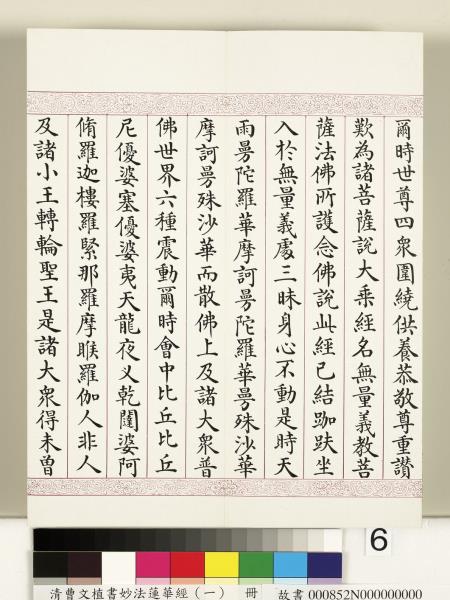 爾時世尊四眾圍繞供養恭敬尊重讚
歎為諸菩薩說大乘經名無量義教菩
薩法佛所護念佛說此經已結跏趺坐
入於無量義處三昧身心不動是時天
雨曼陀羅華摩訶曼陀羅華曼殊沙華
摩訶曼殊沙華而散佛上及諸大眾普
佛世界六種震動爾時會中比丘比丘
尼優婆塞優婆夷天龍夜叉乾闥婆阿
脩羅迦樓羅緊那羅摩睺羅伽人非人
及諸小王轉輪聖王是諸大眾得未曾
6
清曹文植書妙法蓮華經(一) 冊 故書 000852N000000000